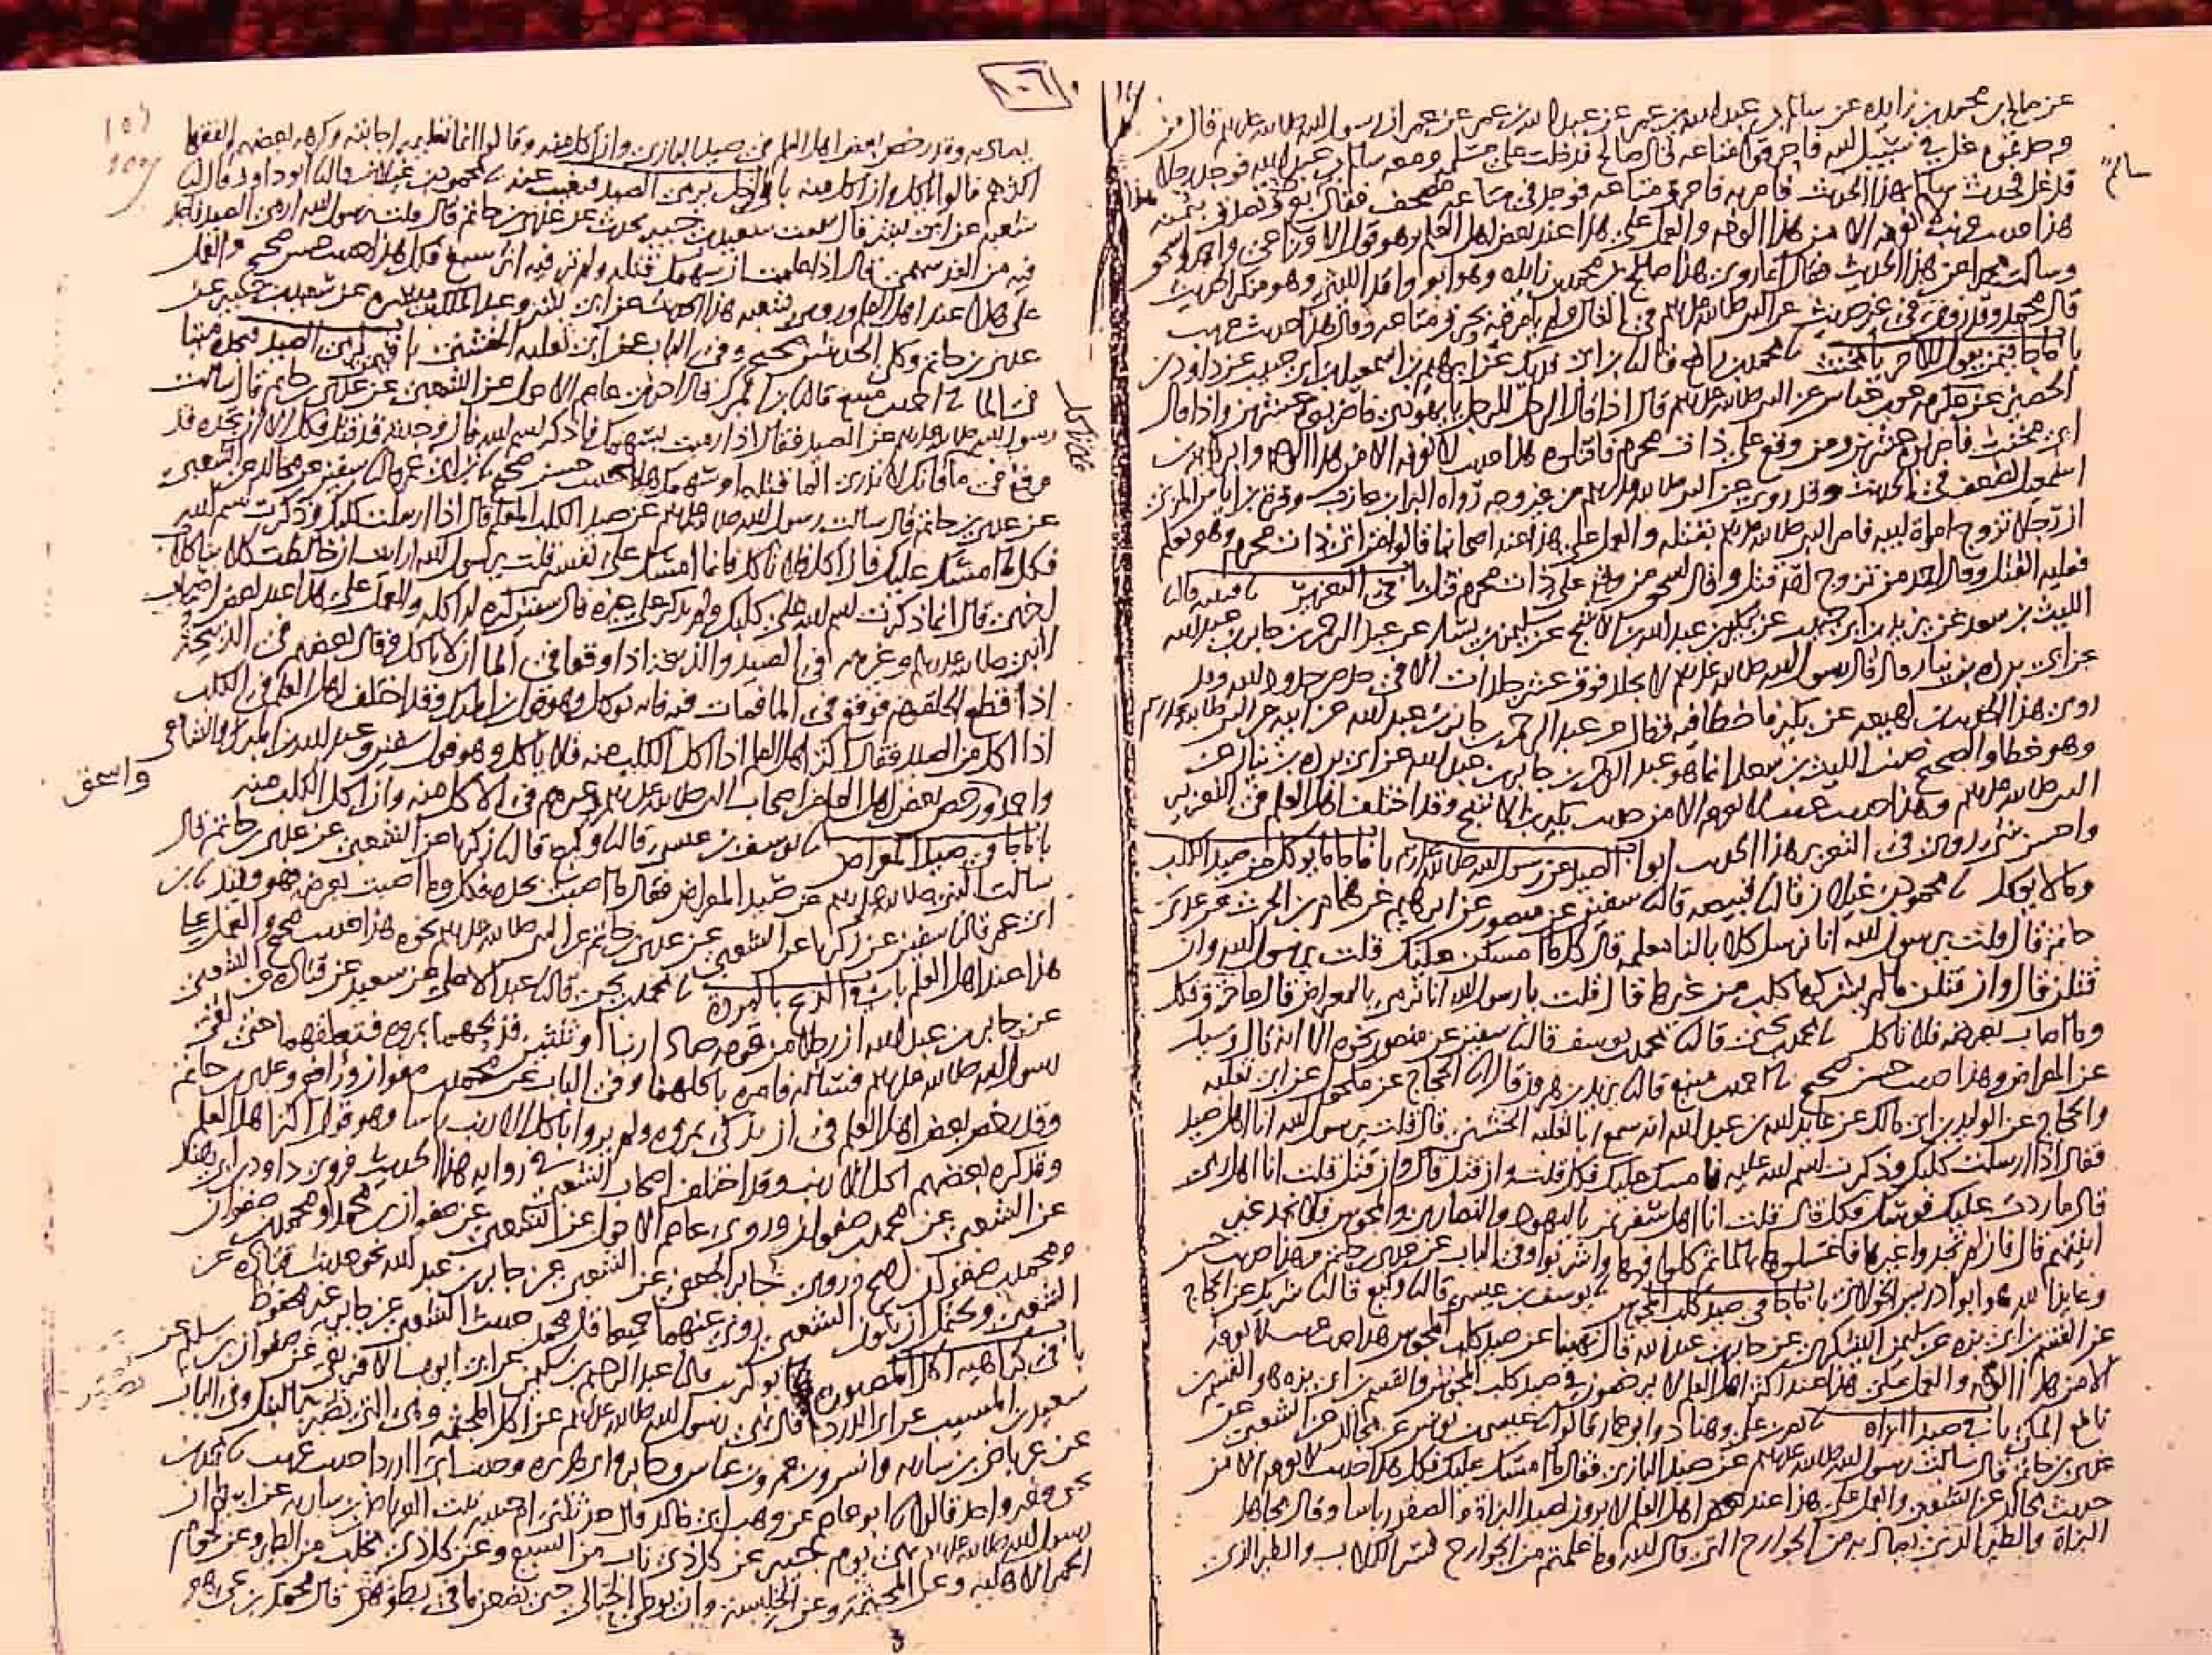 عن صالح بن محمد بن زايدة عن سالم بن عبد الله بن عمر عن عبد الله بن عمر عن عمر ان رسول الله صلى الله عليه وسلم قال من
وجدتموه غل في سبيل الله فاحرقوا متاعه قال صالح فدخلت على مسلمة ومعه سالم بن عبد الله فوجد رجلا
قد غل فحدث سالم بهذا الحديث فامر به فاحرق متاعه فوجد في متاعه مصحف فقال سالم بع هذا وتصدق بثمنه
هذا حديث غريب لا نعرفه الا من هذا الوجه والعمل على هذا عند بعض اهل العلم وهو قول الاوزاعي واحمد واسحق
وسالت محمدا عن هذا الحديث فقال انما روى هذا صالح بن محمد بن زايدة وهو ابو واقد الليثي وهو منكر الحديث
قال محمد وقد روي في غير حديث عن النبي صلى الله عليه وسلم في الغال ولم يامر فيه بحرق متاعه وقال هذا حديث غريب
باب ما جا فيمن يقول للاخر يا مخنث محمد بن رافع قال ابن ابي فديك عن ابراهيم بن اسمعيل بن ابي حبيبة عن داود بن
الحصين عن عكرمة عن ابن عباس عن النبي صلى الله عليه وسلم قال اذا قال الرجل للرجل يا يهودي فاضربوه عشرين واذا قال
يا مخنث فاضربوه عشرين ومن وقع على ذات محرم فاقتلوه هذا حديث لا نعرفه الا من هذا الوجه وابراهيم بن
اسمعيل يضعف في الحديث وقد روي عن النبي صلى الله عليه وسلم من غير وجه رواه البرا بن عازب وقرة بن اياس المزني
ان رجلا تزوج امراة ابيه فامر النبي صلى الله عليه وسلم بقتله والعمل على هذا عند اصحابنا قالوا من اتى ذات محرم وهو يعلم
فعليه القتل وقال احمد من تزوج امه قتل وقال اسحق من وقع على ذات محرم قتل باب في التعزير قتيبة قال
الليث بن سعد عن يزيد بن ابي حبيب عن بكير بن عبد الله بن الاشج عن سليمن بن يسار عن عبد الرحمن بن جابر بن عبد الله
عن ابي بردة بن نيار قال قال رسول الله صلى الله عليه وسلم لا يجلد فوق عشر جلدات الا في حد من حدود الله وقد
روى هذا الحديث ابن لهيعة عن بكير فاخطا فيه فقال عن عبد الرحمن بن جابر بن عبد الله عن ابيه عن النبي صلى الله عليه وسلم
وهو خطا والصحيح حديث الليث بن سعد انما هو عبد الرحمن بن جابر بن عبد الله عن ابي بردة بن نيار عن
النبي صلى الله عليه وسلم وهذا حديث غريب لا نعرفه الا من حديث بكير بن الاشج وقد اختلف اهل العلم في التعزير
واحسن شي روي في التعزير هذا الحديث ابواب الصيد عن رسول الله صلى الله عليه وسلم باب ما جا ما يوكل من صيد الكلب
وما لا يوكل محمود بن غيلان قال قبيصة قال سفين عن منصور عن ابرهيم عن همام بن الحرث عن عدي بن
حاتم قال قلت يرسول الله انا نرسل كلابا لنا معلمة قال كل ما امسكن عليك قلت يرسول الله وان
قتلن قال وان قتلن ما لم يشركها كلب من غيرها قال قلت يا رسول الله انا نرمي بالمعراض قال ما خزق فكل
وما اصاب بعرضه فلا تاكل محمد بن يحيى قال محمد بن يوسف قال سفين عن منصور نحوه الا انه قال وسيل
عن المعراض وهذا حديث حسن صحيح احمد بن منيع قال يزيد بن هرون قال الحجاج عن مكحول عن ابي ثعلبة
والحجاج عن الوليد بن ابي مالك عن عايذ الله بن عبد الله انه سمع ابا ثعلبة الخشني قال قلت يرسول الله انا اهل صيد
فقال اذا ارسلت كلبك وذكرت اسم الله عليه فامسك عليك فكل قلت وان قتل قال وان قتل قلت انا اهل رمي
قال ما ردت عليك قوسك فكل قال قلت انا اهل سفر نمر باليهود والنصارى والمجوس فلا نجد غير
انيتهم قال فان لم تجدوا غيرها فاغسلوها بالما ثم كلوا فيها واشربوا وفي الباب عن عدي بن حاتم وهذا حديث حسن
وعايذ الله هو ابو ادريس الخولاني باب ما جا في صيد كلب المجوس يوسف بن عيسى قال وكيع قال شريك عن الحجاج
عن القسم بن ابي بزة عن سليمن اليشكري عن جابر بن عبد الله قال نهينا عن صيد كلب المجوس هذا حديث غريب لا نعرفه
الا من هذا الوجه والعمل على هذا عند اكثر اهل العلم لا يرخصون في صيد كلب المجوس والقسم بن ابي بزة هو القسم بن
نافع المكي باب في صيد البزاة نصر بن علي وهناد وابو عمار قالوا عيسى بن يونس عن مجالد عن الشعبي عن
عدي بن حاتم قال سالت رسول الله صلى الله عليه وسلم عن صيد البازي فقال ما امسك عليك فكل هذا حديث لا نعرفه الا من
حديث مجالد عن الشعبي والعمل على هذا عند اهل العلم لا يرون بصيد البزاة والصقور باسا وقال مجاهد
البزاة والطير الذي يصاد به من الجوارح التي قال الله وما علمتم من الجوارح فسر الكلاب والطير الذي
سالم
يصاد به وقد رخص بعض اهل العلم في صيد البازي وان اكل منه وقالوا انما تعليمه اجابته وكرهه بعضهم والفقها
اكثرهم قالوا ياكل وان اكل منه باب في الرجل يرمي الصيد فيغيب عنه محمود بن غيلان قال ابو داود قال
شعبة عن ابي بشر قال سمعت سعيد بن جبير يحدث عن عدي بن حاتم قال قلت يرسول الله ارمي الصيد فاجد
فيه من الغد سهمي قال اذا علمت ان سهمك قتله ولم تر فيه اثر سبع فكل هذا حديث حسن صحيح والعمل
على هذا عند اهل العلم وروى شعبة هذا الحديث عن ابي بشر وعبد الملك بن ميسرة عن سعيد بن جبير عن
عدي بن حاتم وكلا الحديثين صحيح وفي الباب عن ابي ثعلبة الخشني باب فيمن يرمي الصيد فيجده ميتا
في الما احمد بن منيع قال ابن المبرك قال اخبرني عاصم الاحول عن الشعبي عن عدي بن حاتم قال سالت
رسول الله صلى الله عليه وسلم عن الصيد فقال اذا رميت بسهمك فاذكر اسم الله فان وجدته قد قتل فكل الا ان تجده قد
وقع في ما فانك لا تدري الما قتله او سهمك هذا حديث حسن صحيح ابن ابي عمر قال سفين عن مجالد عن الشعبي
عن عدي بن حاتم قال سالت رسول الله صلى الله عليه وسلم عن صيد الكلب المعلم قال اذا ارسلت كلبك وذكرت اسم الله
فكل ما امسك عليك فان اكل فلا تاكل فانما امسك على نفسه قلت يرسول الله ارايت ان خالطت كلابنا كلاب
اخرى قال انما ذكرت اسم الله على كلبك ولم تذكر على غيره قال سفين كره له اكله والعمل على هذا عند بعض اصحاب
النبي صلى الله عليه وسلم وغيرهم في الصيد والذبيحة اذا وقعا في الما ان لا ياكل فقال بعضهم في الذبيحة
اذا قطع الحلقوم فوقع في الما فمات فيه فانه يوكل وهو قول ابن المبرك وقد اختلف اهل العلم في الكلب
اذا اكل من الصيد فقال اكثر اهل العلم اذا اكل الكلب منه فلا ياكل وهو قول سفين وعبد الله بن المبرك والشافعي
واحمد ورخص بعض اهل العلم من اصحاب النبي صلى الله عليه وسلم وغيرهم في الاكل منه وان اكل الكلب منه
واسحق
باب ما جا في صيد المعراض يوسف بن عيسى قال وكيع قال زكريا عن الشعبي عن عدي بن حاتم قال
سالت النبي صلى الله عليه وسلم عن صيد المعراض فقال ما اصبت بحده فكل وما اصبت بعرضه فهو وقيذ ابن
ابي عمر قال سفين عن زكريا عن الشعبي عن عدي بن حاتم عن النبي صلى الله عليه وسلم نحوه هذا حديث صحيح والعمل على
هذا عند اهل العلم باب في الذبح بالمروة محمد بن يحيى قال عبد الاعلى عن سعيد عن قتادة عن الشعبي
عن جابر بن عبد الله ان رجلا من قومه صاد ارنبا او ثنتين فذبحهما بمروة فتعلقهما حتى لقي
رسول الله صلى الله عليه وسلم فساله فامره باكلهما وفي الباب عن محمد بن صفوان ورافع وعدي بن حاتم
وقد رخص بعض اهل العلم في ان يذكي بمروة ولم يروا باكل الارنب باسا وهو قول اكثر اهل العلم
وقد كره بعضهم اكل الارنب وقد اختلف اصحاب الشعبي في رواية هذا الحديث فروى داود بن ابي هند
عن الشعبي عن محمد بن صفوان وروى عاصم الاحول عن الشعبي عن صفوان بن محمد او محمد بن صفوان
ومحمد بن صفوان اصح وروى جابر الجعفي عن الشعبي عن جابر بن عبد الله نحو حديث قتادة عن
الشعبي ويحتمل ان يكون الشعبي روى عنهما جميعا قال محمد حديث الشعبي عن جابر غير محفوظ
باب في كراهية اكل المصبورة ابو كريب قال عبد الرحيم بن سليمن عن ابي ايوب الافريقي عن صفوان بن سليم عن
سعيد بن المسيب عن ابي الدردا قال نهى رسول الله صلى الله عليه وسلم عن اكل المجثمة وهي التي تصبر بالنبل وفي الباب
عن عرباض بن سارية وانس وابن عمر وابن عباس وجابر وابي هريرة وحديث ابي الدردا حديث غريب محمد بن
يحيى وغير واحد قالوا ابو عاصم عن وهب ابي خالد قال حدثتني ام حبيبة بنت العرباض بن سارية عن ابيها ان
رسول الله صلى الله عليه وسلم نهى يوم خيبر عن كل ذي ناب من السبع وعن كل ذي مخلب من الطير وعن لحوم
الحمر الاهلية وعن المجثمة وعن الخليسة وان توطى الحبالى حتى يضعن ما في بطونهن قال محمد بن يحيى هو